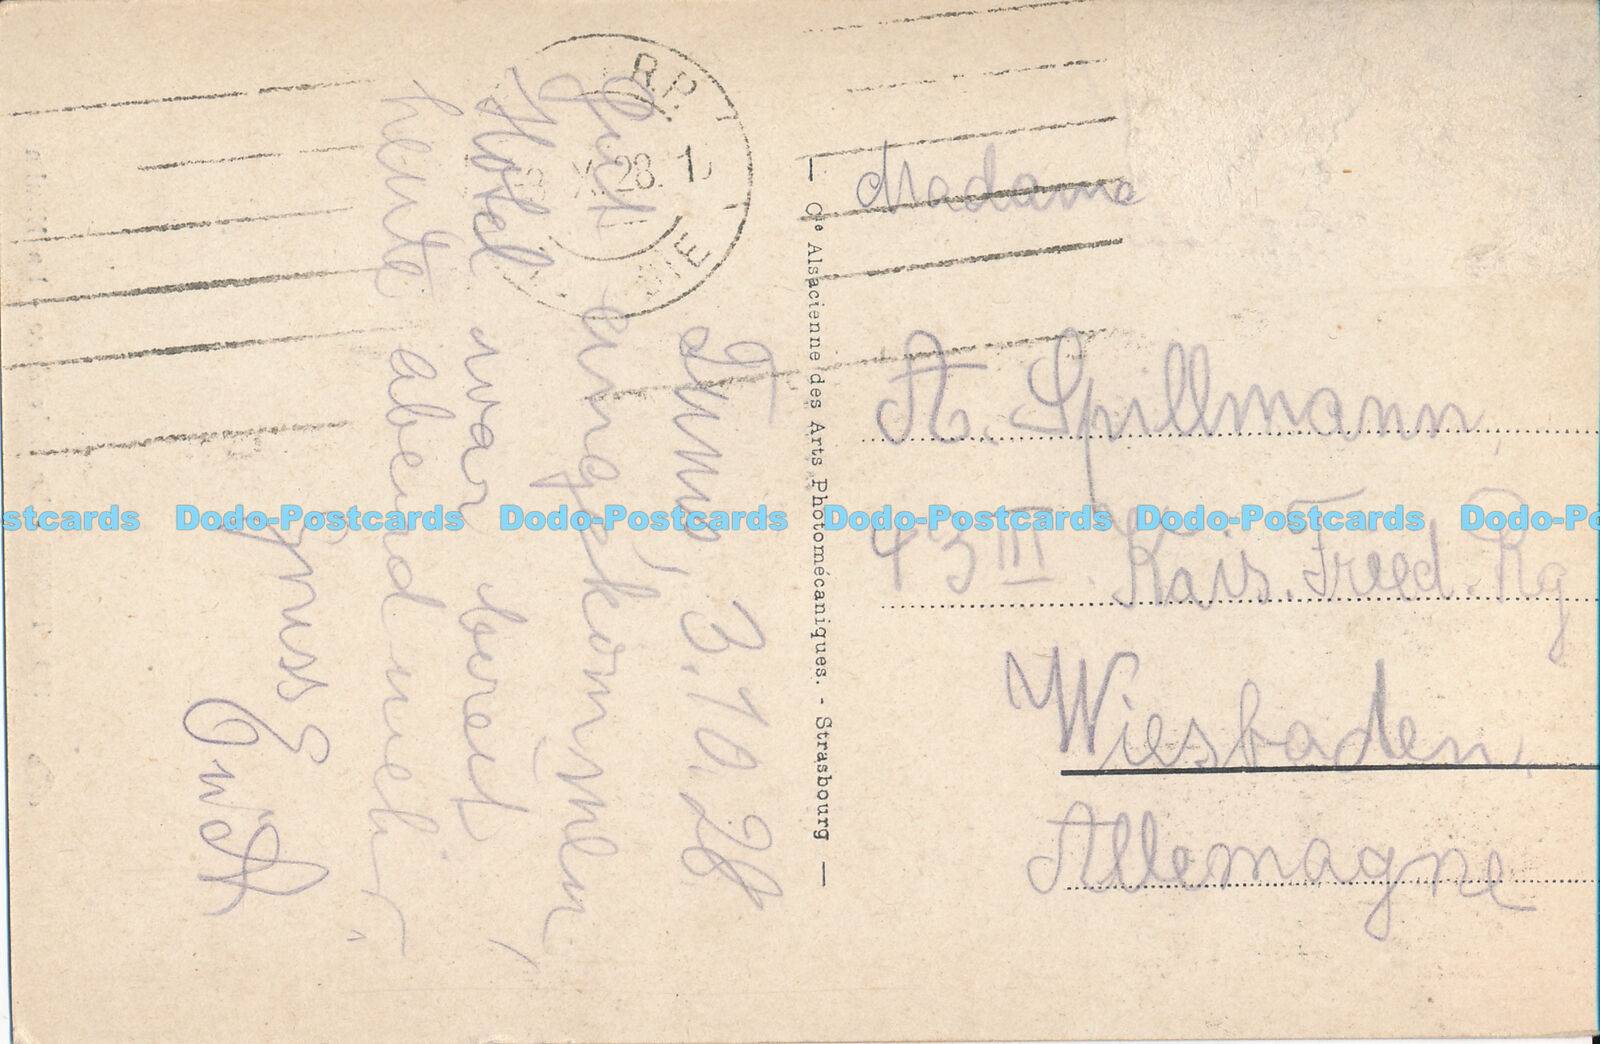 Tunis, 3.10.28
Gut angekommen,
Hotel war bereit,
heute abend
Gruss
R.P.
X 28. 1
SIE
Cie Alsacienne des Arts Photomécaniques. - Strasbourg
Madame
A. Spillmann,
43 III Kais. Fried. Rg
Wiesbaden,
Allemagne
stcards Dodo-Postcards Dodo-Postcards Dodo-Postcards Dodo-Postcards Dodo-Po